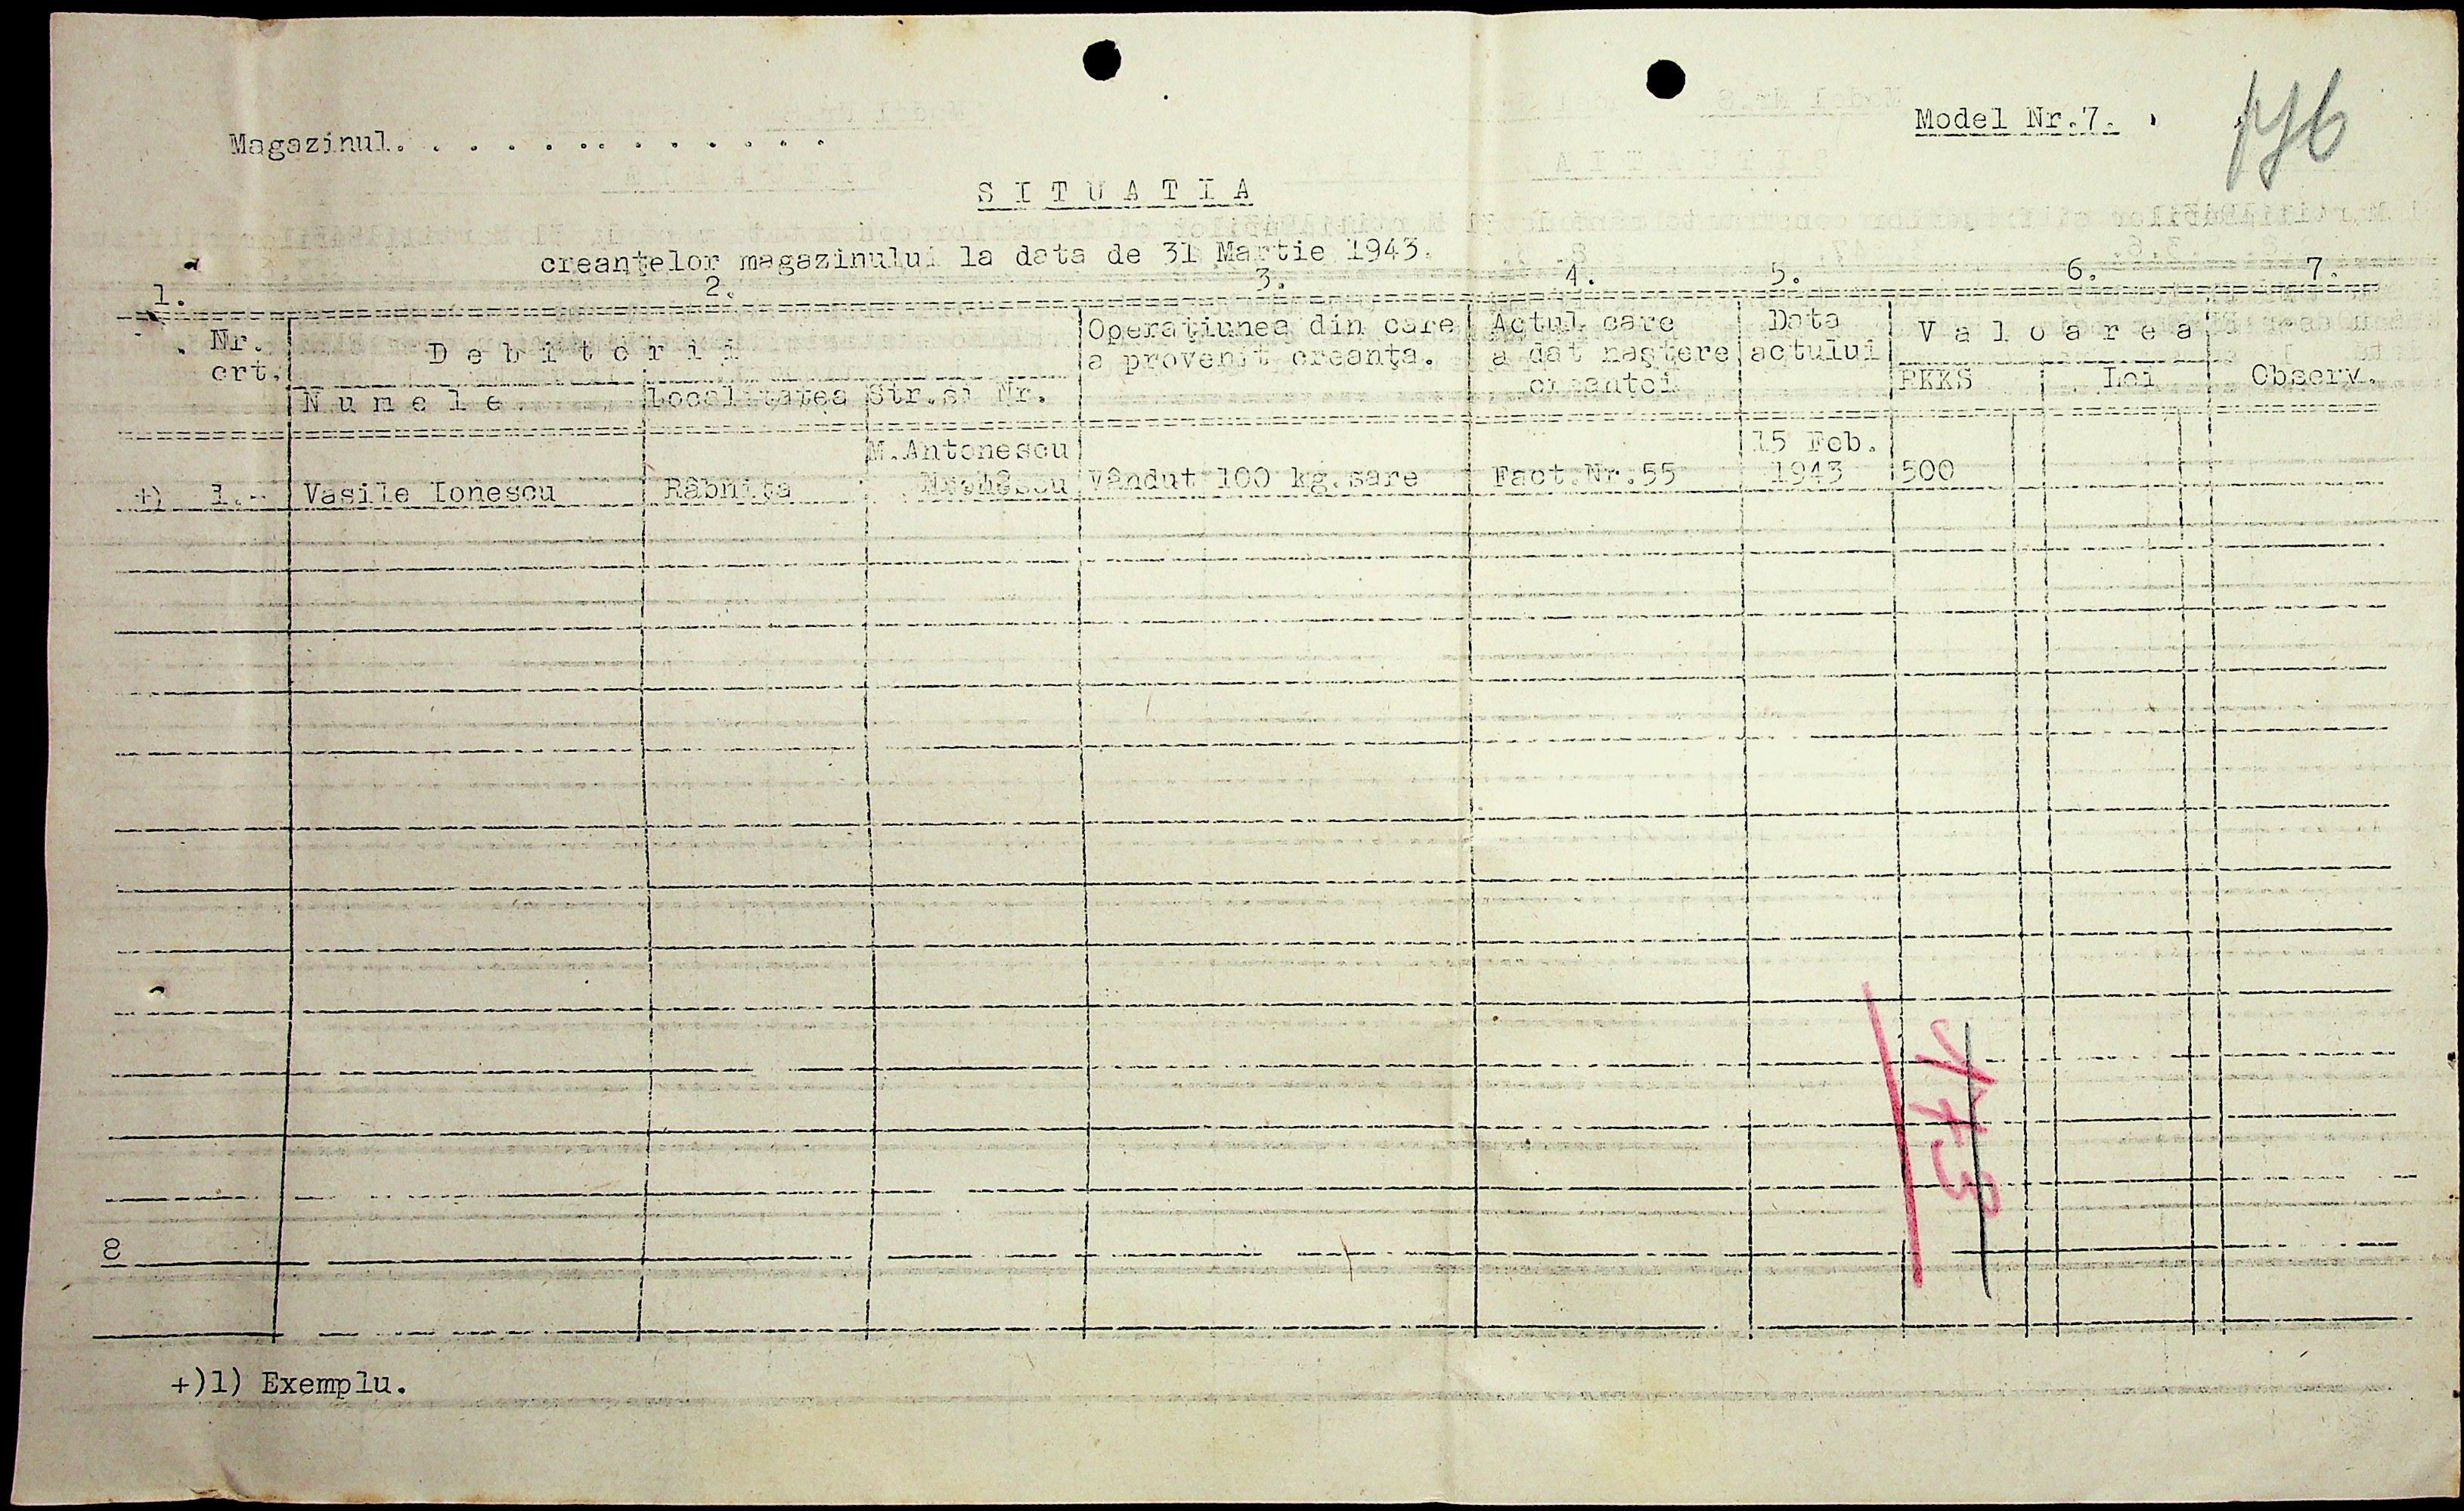 Model Nr.7.
176
Magazinul. . . . . . . . . . . . .
S I T U A T I A
creanțelor magazinului la data de 31 Martie 1943.
1. 2. 3. 4. 5. 6. 7.
Nr. crt. D e b i t o r i i Operațiunea din care Actul care Data V a l o a r e a
a provenit creanța. a dat naștere actului
N u m e l e localitatea Str.și Nr. creanței RKKS Lei Observ.
M.Antonescu 15 Feb.
+) 1.- Vasile Ionescu Râbnița Vândut 100 kg.sare Fact.Nr.55 1943 500
173
8
+)1) Exemplu.